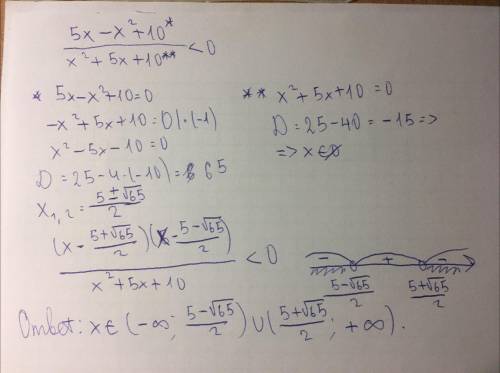 5x - x² + 10 *
x² + 5x + 10 ** < 0
* 5x - x² + 10 = 0
-x² + 5x + 10 = 0 | · (-1)
x² - 5x - 10 = 0
D = 25 - 4 · (-10) = 65
x₁,₂ = (5 ± √65)/2
** x² + 5x + 10 = 0
D = 25 - 40 = -15 =>
=> x ∈ ∅
(x - (5+√65)/2)(x - (5-√65)/2)
x² + 5x + 10 < 0
- + -
(5-√65)/2 (5+√65)/2
Ответ: x ∈ (-∞; (5-√65)/2) ∪ ((5+√65)/2; +∞).